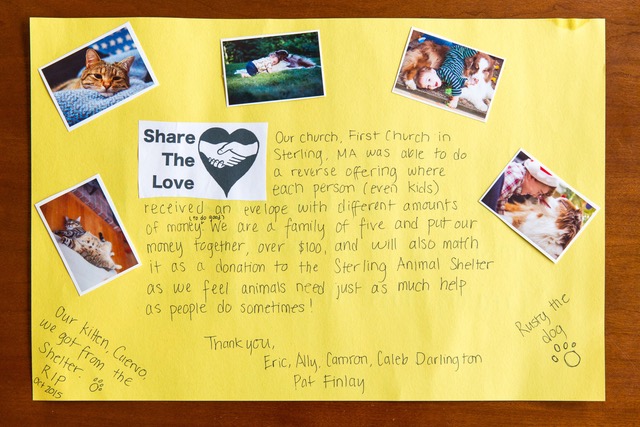 Share
The
Love
Our church, First Church in
Sterling, MA was able to do
a reverse offering where
each person (even kids)
received an evelope with different amounts
of money (to do good). We are a family of five and put our
money together, over $100, and will also match
it as a donation to the Sterling Animal Shelter
as we feel animals need just as much help
as people do sometimes!
Thank you,
Eric, Ally, Camron, Caleb Darlington
Pat Finlay
Our kitten, Cuervo,
we got from the
Shelter.
R.I.P
Oct 2015
Rusty the
dog